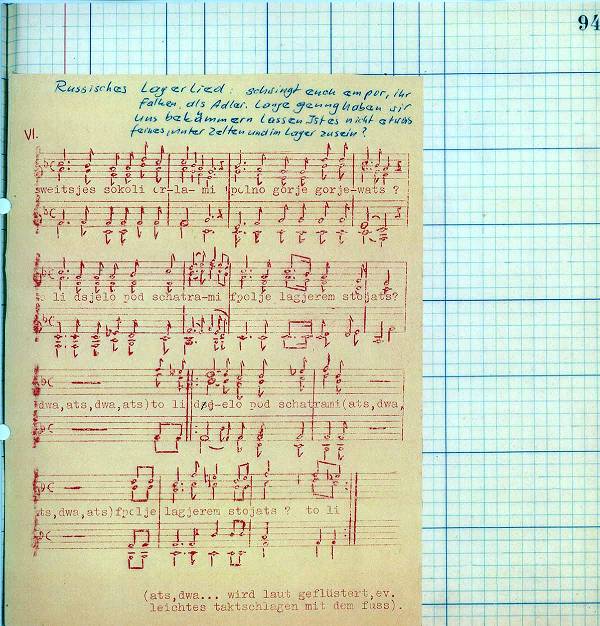 94
Russisches Lagerlied: schwingt euch empor, ihr
Falken, als Adler. Lange genug haben wir
uns bekümmern lassen. Ist es nicht etwas
feines, unter Zelten und im Lager zu sein?
VI.
weitsjes sokoli or-la- mi polno gorje gorje-wats ?
li dsjelo pod schatra-mi fpolje lagjerem stojats?
dwa,ats,dwa,ats)to li dsj-elo pod schatrami(ats,dwa,
ts,dwa,ats)fpolje lagjerem stojats ? to li
(ats,dwa... wird laut geflüstert,ev.
leichtes taktschlagen mit dem fuss).